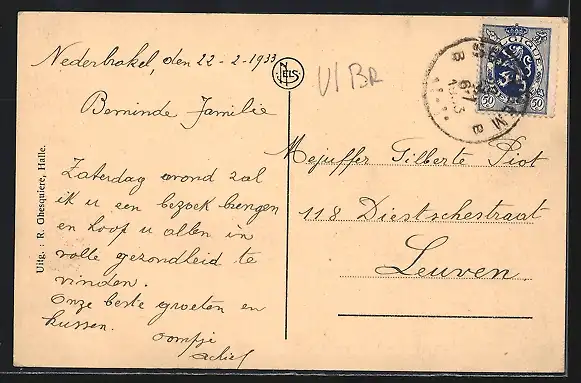 Nederbrakel, den 22-2-1933
Beminde Familie
Zaterdag avond zal
ik u een bezoek brengen
en hoop u allen in
volle gezondheid te
vinden.
Onze beste groeten en
kussen.
oompje
achiel
Uitg.: R. Ghesquiere, Halle.
NELS
Vl BR
BELGIQUE
50 50
B B
6-7
1933
Mejuffer Gilberte Piot
118 Diestschestraat
Leuven